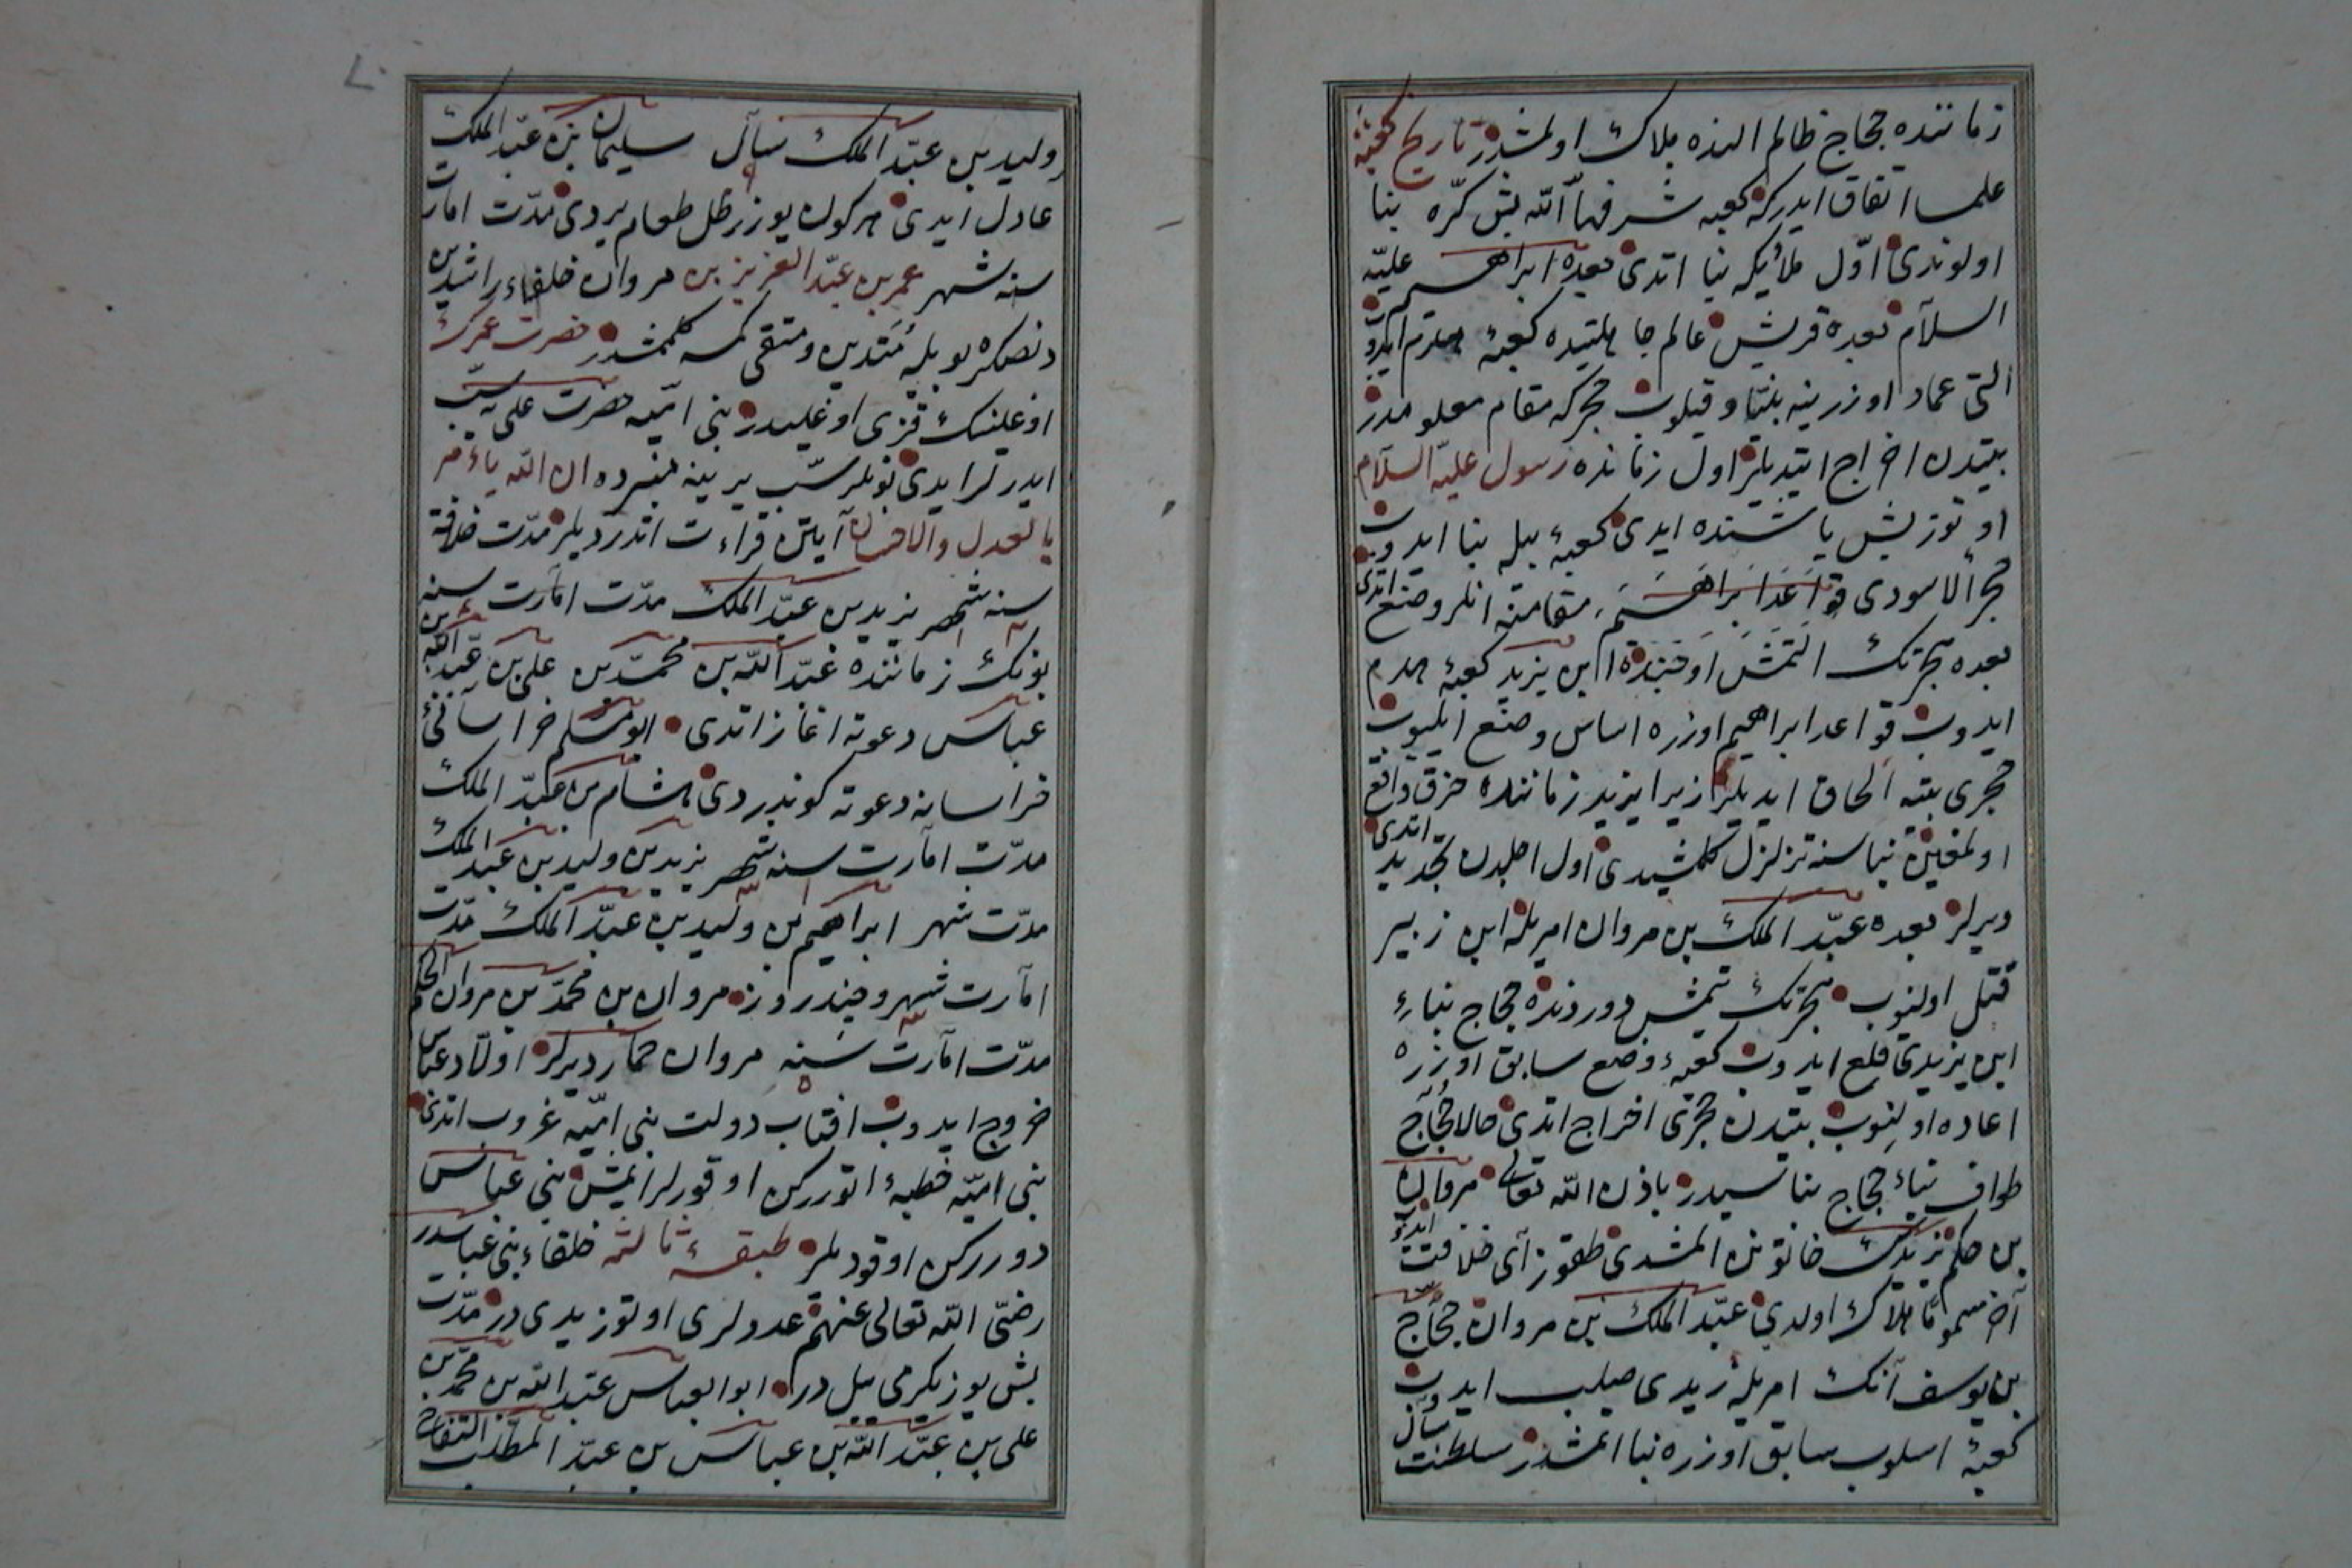 زماننده حجاج ظالم النده هلاك اولمشدر تاريخ كعبه
علما اتفاق ايدركه كعبه شرفها الله بش كره بنا
اولوندى اول ملائكه بنا اتدى بعده ابراهيم عليه
السلام بعده قريش عالم جاهليتده كعبه‌ئ هدم ايدوب
التى عماد اوزرينه بنا قيلوب حجر كه مقام معلومدر
بيتدن اخراج ايتديلر اول زمانده رسول عليه السلام
اوتوز بش ياشنده ايدى كعبه‌ئ بيله بنا ايدوب
حجر الاسودى قواعد ابراهيم مقامنه انلر وضع اتدى
بعده هجرتك التمش اوچنده ابن يزيد كعبه‌ئ هدم
ايدوب قواعد ابراهيم اوزره اساس وضع ايليوب
حجرى بيته الحاق ايديلر زيرا يزيد زماننده حرق واقع
اولمغين بناسنه تزلزل كلمشيدى اول اجلدن تجديد اتدى
ديرلر بعده عبد الملك بن مروان امريله ابن زبير
قتل اولنوب هجرتك يتمش دوردنده حجاج بناء
ابن يزيدى قلع ايدوب كعبه‌ئ وضع سابق اوزره
اعاده اولنوب بيتدن حجرى اخراج اتدى حالا حجاج
طواف بناء حجاج بناسيدر باذن الله تعالى مروان
بن حكم يزيدك خاتونن المشدى طقوز آى خلافت ايدوب
آخر مسموما هلاك اولدى عبد الملك بن مروان حجاج
بن يوسف آنك امريله زيدى صلب ايدوب
كعبه‌ئ اسلوب سابق اوزره بنا اتمشدر سلطنت سال
٧٠
وليد بن عبد الملك سال سليمان بن عبد الملك
عادل ايدى هر كون يوز رطل طعام يردى مدت امارت
سنه شهر عمر بن عبد العزيز بن مروان خلفاء راشدين
دنصكره بويله متدين و متقى كمسه كلممشدر حضرت عمرك
اوغلينك قزى اوغليدر بنى اميه حضرت على‌يه سب
ايدرلر ايدى بونلر سب يرينه منبرده ان الله يأمر
بالعدل والاحسان آيتن قراءت اتدرديلر مدت خلافة
سنه شهر يزيد بن عبد الملك مدت امارت سنه
بونك زماننده عبد الله بن محمد بن على بن عبد الله بن
عباس دعوته اغاز اتدى ابو مسلم خراسانى‌ئ
خراسانه دعوته كوندردى هشام بن عبد الملك
مدت امارت سنه شهر يزيد بن وليد بن عبد الملك
مدت شهر ابراهيم بن وليد بن عبد الملك مدت
امارت شهر و چند روز مروان بن محمد بن مروان الحكم
مدت امارت سنه مروان حمار ديرلر اولاد عباس
خروج ايدوب افتاب دولت بنى اميه غروب اتدى
بنى اميه خطبه‌ئ اتوررکن اوقورلر ايمش بنى عباس
دوررکن اوقوديلر طبقه‌ء ثالثه خلفاء بنى عباسدر
رضى الله تعالى عنهم عددلرى اوتوز يدى در مدت
بش يوز يكرمى ييل در ابو العباس عبد الله بن محمد بن
على بن عبد الله بن عباس بن عبد المطلب السفاح